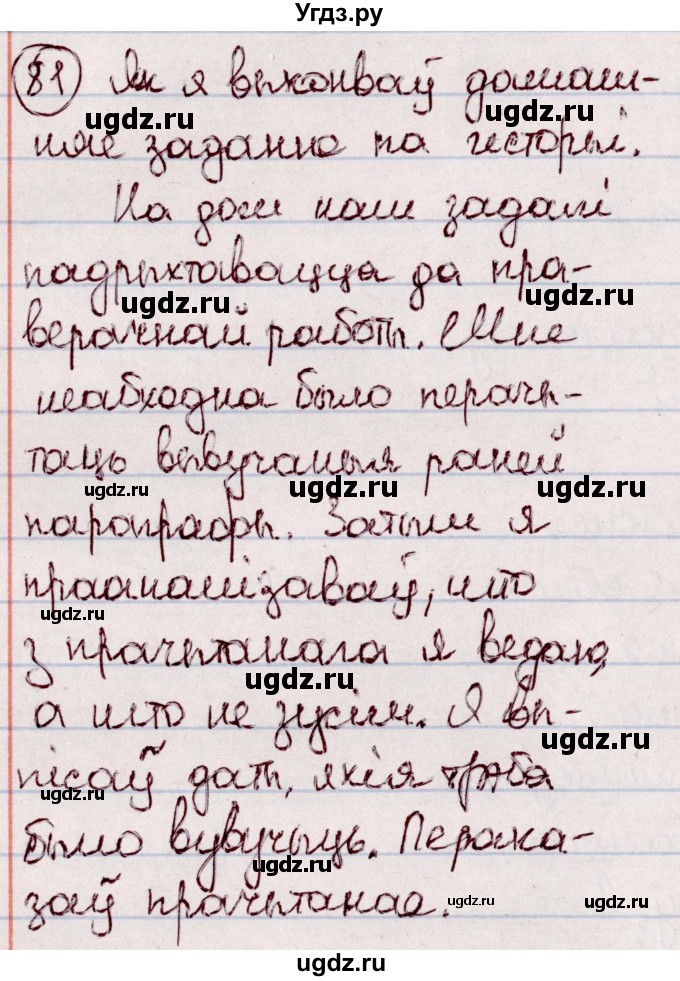 Угдз.ру
81 Як я выконваў дамаш-
няе заданне па гісторыі.
ugdz.ru ugdz.ru
На дом нам задалі
падрыхтавацца да пра-
ugdz.ru ugdz.ru
верачнай работы. Мне
неабходна было перачы-
таць вывучаныя раней
ugdz.ru ugdz.ru ugdz.ru
параграфы. Затым я
прааналізаваў, што
ugdz.ru
з прачытанага я ведаю,
ugdz.ru
а што не зусім. Я вы-
ugdz.ru
пісаў даты, якія трэба
ugdz.ru
было вувучыць. Перака-
ugdz.ru
заў прачытанае.
ugdz.ru ugdz.ru
ugdz.ru